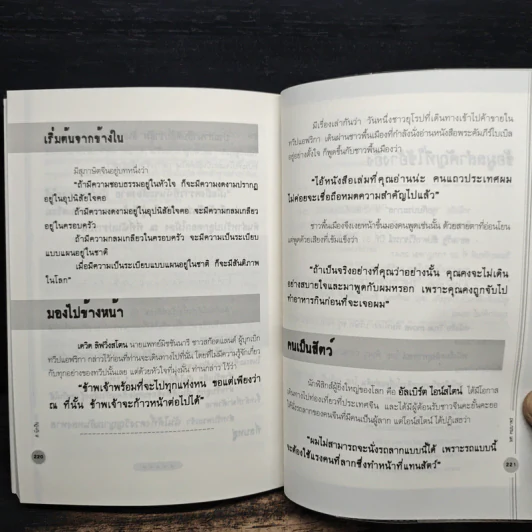 เริ่มต้นจากข้างใน
มีสุภาษิตจีนอยู่บทหนึ่งว่า
"ถ้ามีความชอบธรรมอยู่ในหัวใจ ก็จะมีความงดงามปรากฏ
อยู่ในอุปนิสัยใจคอ
ถ้ามีความงดงามอยู่ในอุปนิสัยใจคอ จะมีความกลมเกลียว
อยู่ในครอบครัว
ถ้ามีความกลมเกลียวในครอบครัว จะมีความเป็นระเบียบ
แบบแผนอยู่ในชาติ
เมื่อมีความเป็นระเบียบแบบแผนอยู่ในชาติ ก็จะมีสันติภาพ
ในโลก"
มองไปข้างหน้า
เดวิด ลิฟวิ่งสโตน นายแพทย์มิชชันนารี ชาวสก๊อตแลนด์ ผู้บุกเบิก
ทวีปแอฟริกา กล่าวไว้ก่อนที่ท่านจะเดินทางไปที่นั่น โดยที่ไม่มีความรู้จักเกี่ยว
กับทุกอย่างของทวีปนั้นเลย แต่ด้วยหัวใจที่มุ่งมั่น ท่านกล่าว ไว้ว่า
"ข้าพเจ้าพร้อมที่จะไปทุกแห่งหน ขอแต่เพียงว่า
ณ ที่นั้น ข้าพเจ้าจะก้าวหน้าต่อไปได้"
220
มีเรื่องเล่ากันว่า วันหนึ่งชาวยุโรปที่เดินทางเข้าไปค้าขายใน
ทวีปแอฟริกา เดินผ่านชาวพื้นเมืองที่กำลังนั่งอ่านหนังสือพระคัมภีร์ไบเบิล
อยู่อย่างตั้งใจ ก็พูดขึ้นกับชาวพื้นเมืองว่า
"ไอ้หนังสือเล่มที่คุณอ่านน่ะ คนแถวประเทศผม
ไม่ค่อยจะเชื่อถือหมดความสำคัญไปแล้ว"
ชาวพื้นเมืองจึงเงยหน้าขึ้นมองคนพูดเช่นนั้น ด้วยสายตาที่อ่อนโยน
แต่พูดด้วยเสียงที่เข้มแข็งว่า
"ถ้าเป็นจริงอย่างที่คุณว่าอย่างนั้น คุณคงจะไม่เดิน
อย่างสบายใจและมาพูดกับผมหรอก เพราะคุณคงถูกจับไป
ทำอาหารกินก่อนที่จะเจอผม"
คนเป็นสัตว์
นักฟิสิกส์ผู้ยิ่งใหญ่ของโลก คือ อัลเบิร์ต ไอน์สไตน์ ได้มีโอกาส
เดินทางไปท่องเที่ยวที่ประเทศจีน และได้มีผู้ต้อนรับชาวจีนคะยั้นคะยอ
ให้นั่งรถลากของคนจีนที่มีคนเป็นผู้ลาก แต่ไอน์สไตน์ ได้ปฏิเสธว่า
"ผมไม่สามารถจะนั่งรถลากแบบนี้ได้ เพราะรถแบบนี้
จะต้องใช้แรงคนที่ลากซึ่งทำหน้าที่แทนสัตว์"
221